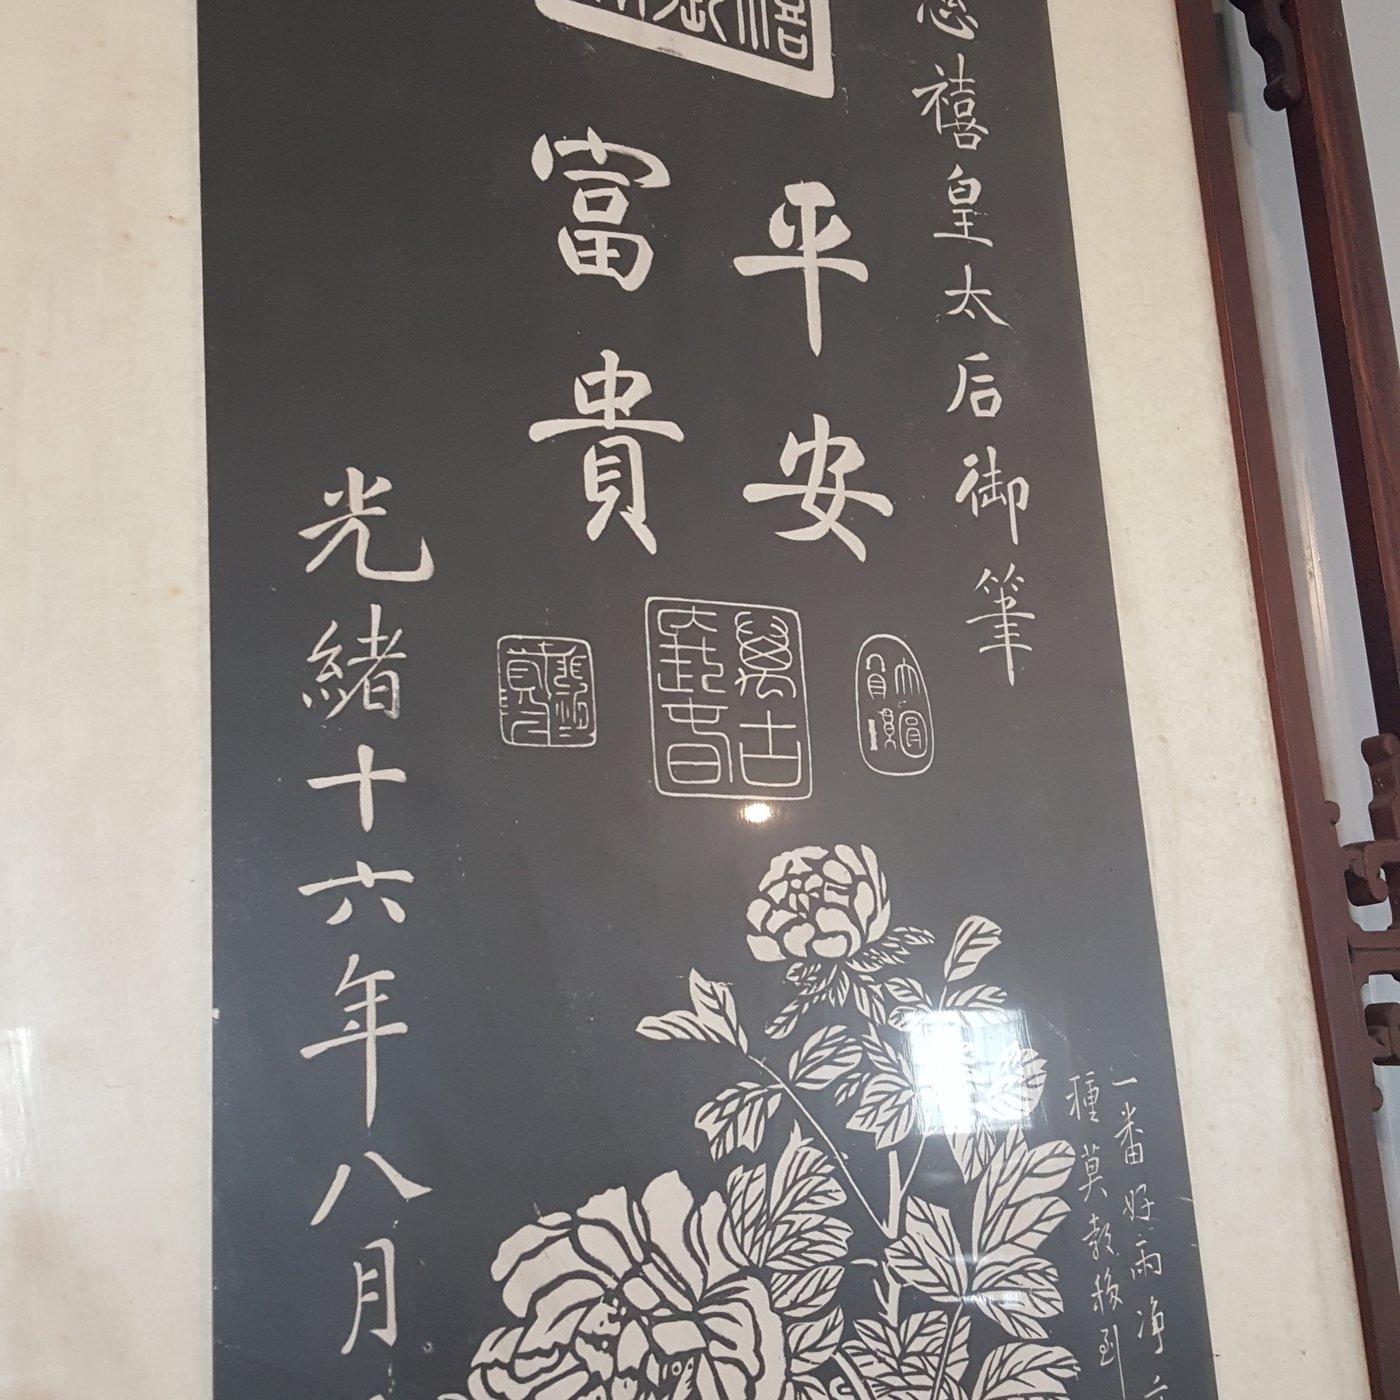 慈禧皇太后御筆
平安
富貴
萬古
光緒十六年八月
一番好雨淨
種莫教移到